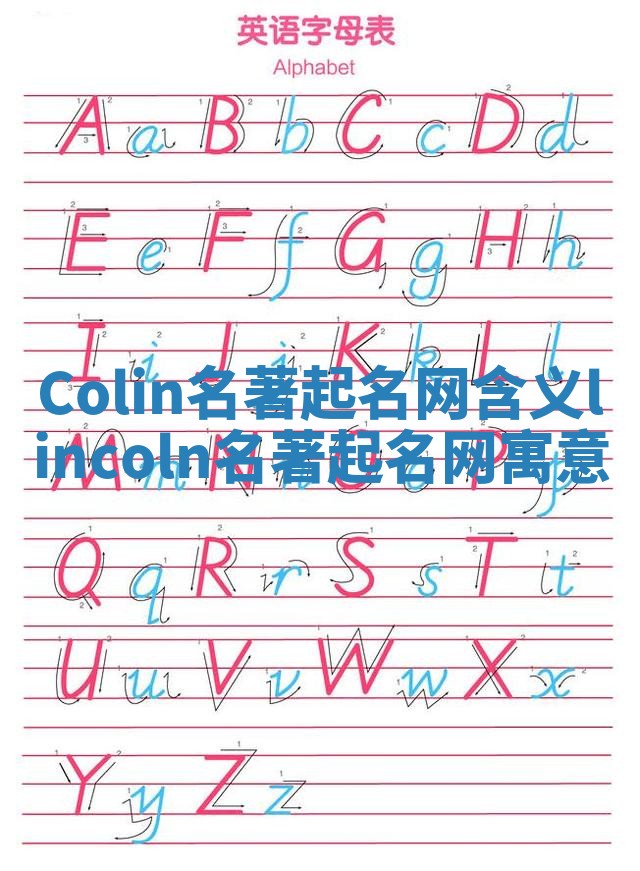 英语字母表
Alphabet
A a B b C c D d
E e F f G g H h
I i J j K k L l
Colin名著起名网含义l
incoln名著起名网寓意
M m N n O o P p
Q q R r S s T t
U u V v W w X x
Y y Z z